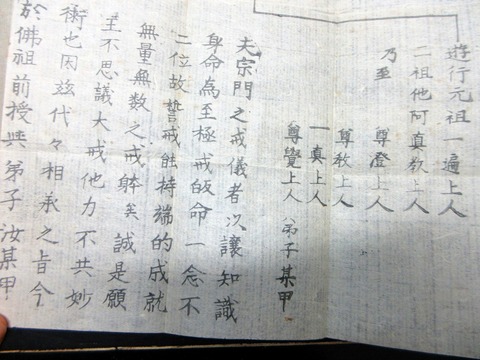 遊行元祖一遍上人
二祖他阿真教上人
乃至 尊澄上人
尊教上人
一真上人
尊覺上人 弟子某甲
夫宗門之戒儀者以讓知識
身命為至極戒皈命一念不
二位故誓戒能持端的成就
無量無数之戒躰矣誠是願
王不思議大戒他力不共妙
術也因玆代々相承之旨今
於佛祖前授與弟子汝某甲